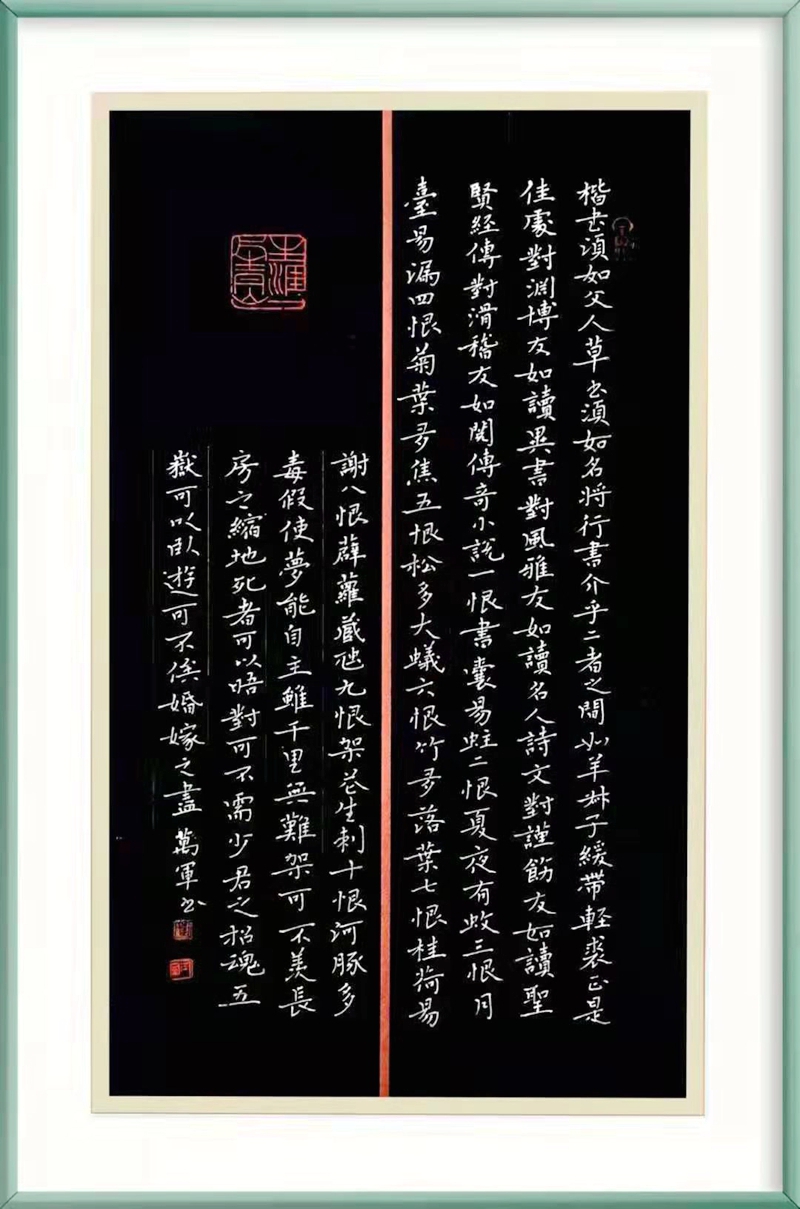 楷书湏如文人草书湏如名将行書介乎二者之間如羊叔子緩帶輕裘正是
佳處對淵博友如讀異書對風雅友如讀名人詩文對謹飭友如讀聖
賢經傳對滑稽友如閱傳奇小說一恨書囊易蛀二恨夏夜有蚊三恨月
臺易漏四恨菊葉多焦五恨松多大蟻六恨竹多落葉七恨桂荷易
謝八恨薜蘿藏虺九恨架花生刺十恨河豚多
毒假使夢能自主雖千里無難架可不羨長
房之縮地死者可以晤對可不需少君之招魂五
嶽可以臥遊可不俟婚嫁之盡 萬軍书